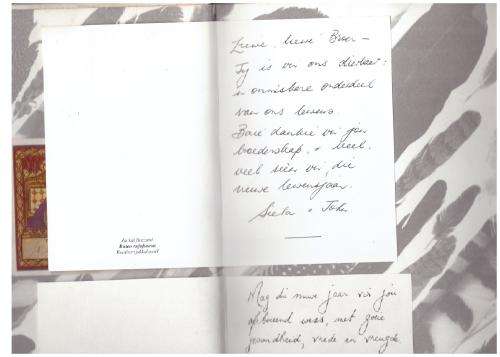 Liewe, liewe Broer —
Jy is vir ons dierbaar:
'n onmisbare onderdeel
van ons lewens.
Baie dankie vir jou
broederskap, & veel,
veel seën vir die
nuwe lewensjaar.
& John
Mag die nuwe jaar vir jou
wees, met goeie
gesondheid, vrede en vreugde.